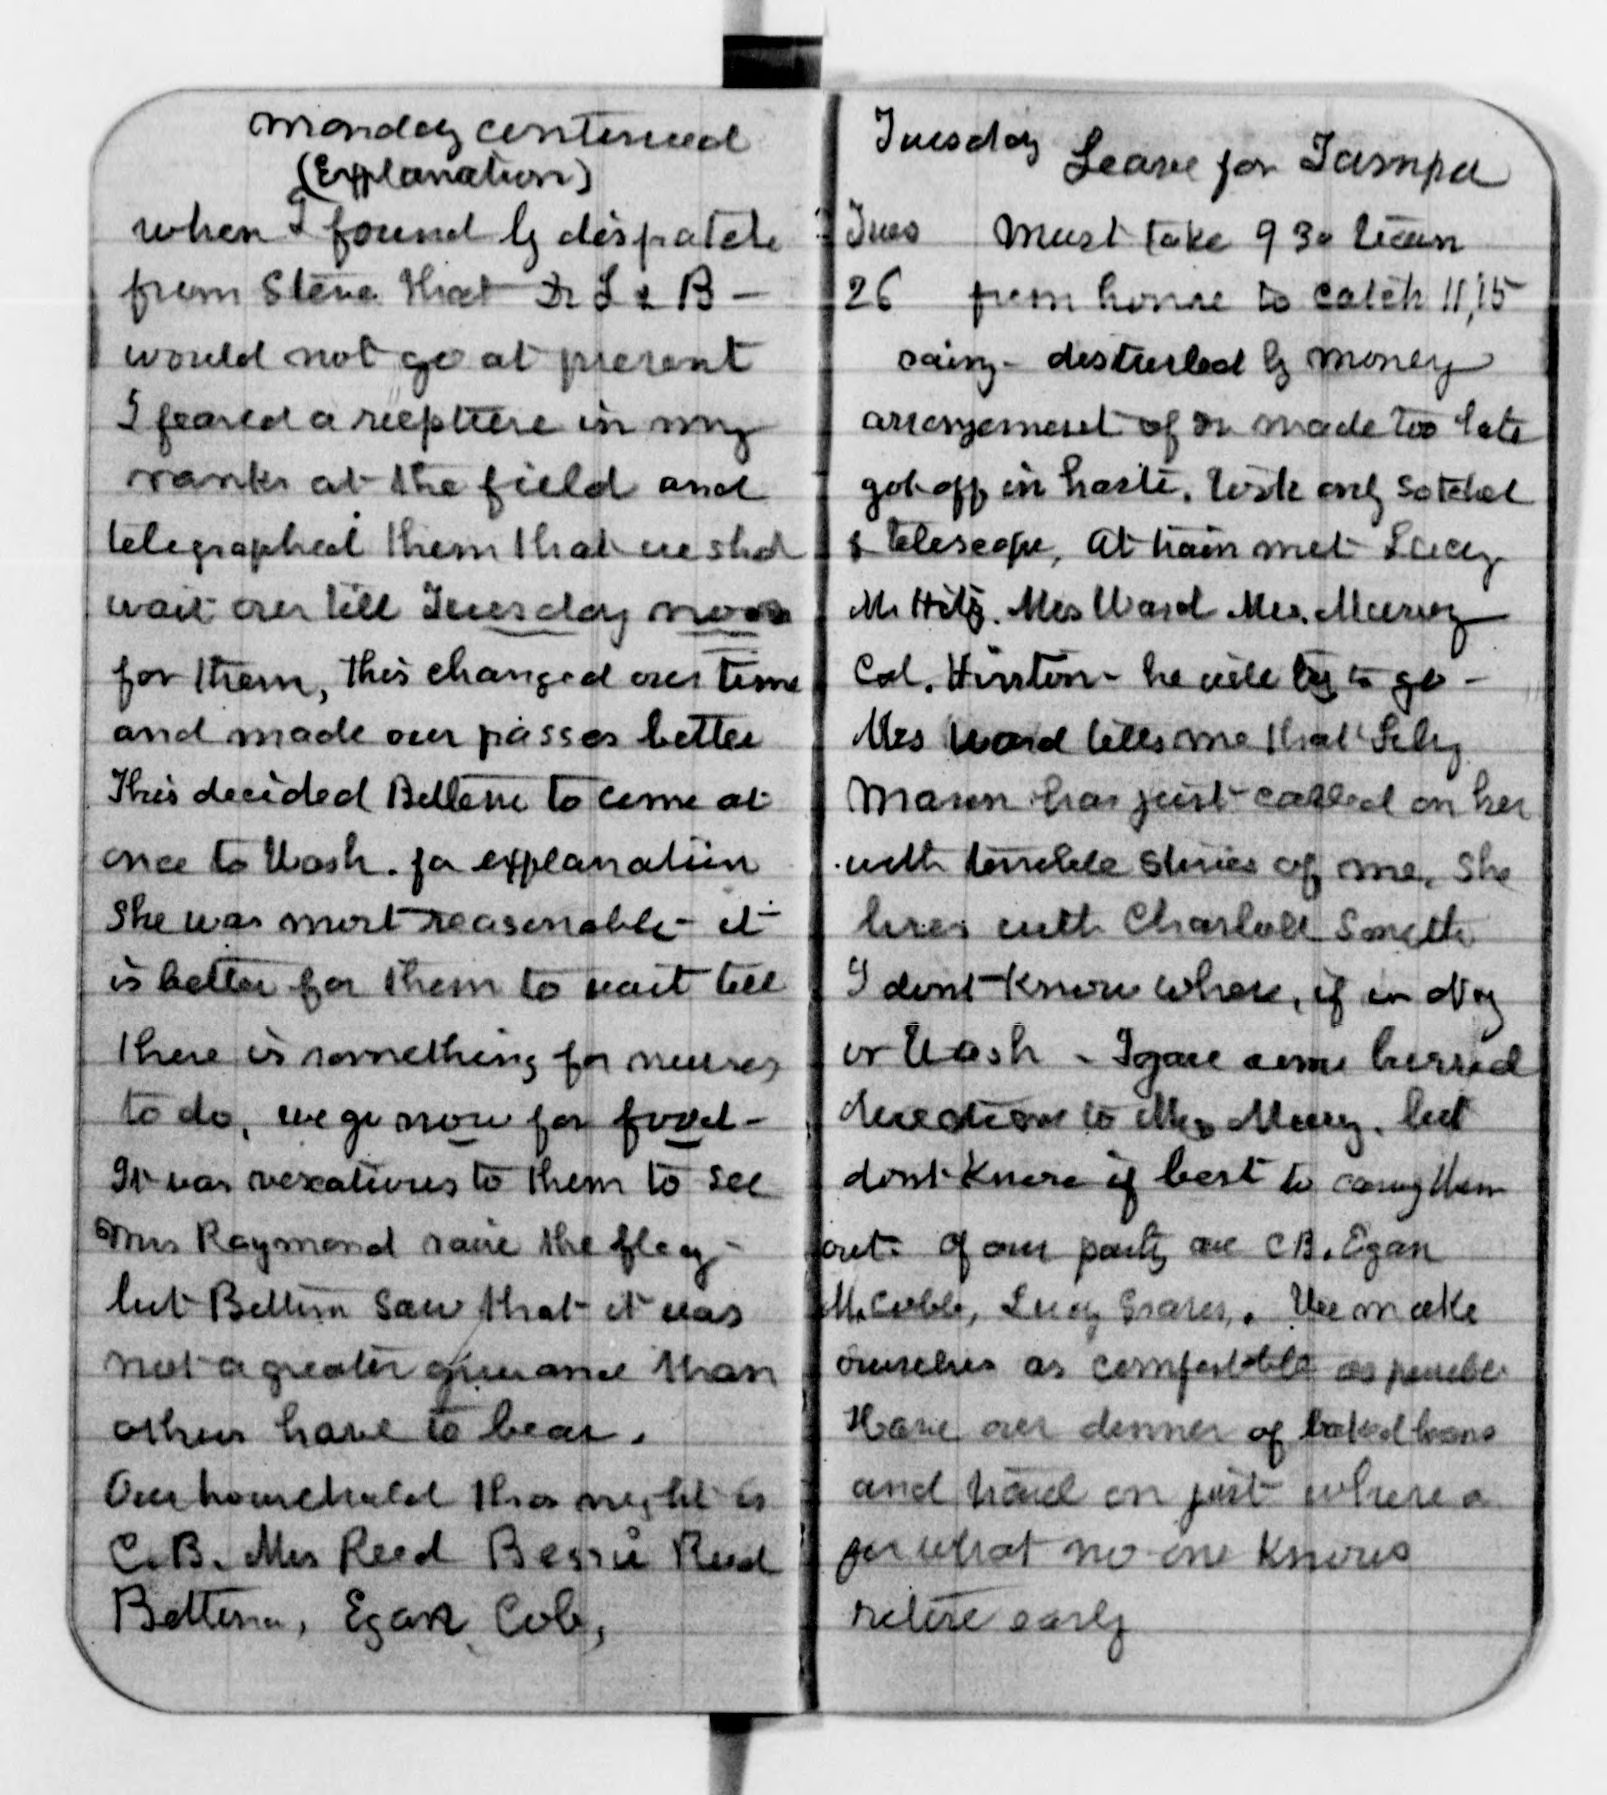 Monday continued
(Explanation)
when I found by dispatch
from Steve that Dr L & B —
would not go at present
I feared a rupture in my
ranks at the field and
telegraphed them that we shd
wait over till Tuesday noon
for them, this changed our time
and made our passes better
This decided Bettina to come at
once to Wash. for explanation
She was most reasonable - it
is better for them to wait till
there is something for nurses
to do, we go now for food -
It was vexatious to them to see
Mrs Raymond raise the flag -
but Bettina saw that it was
not a greater grievance than
others have to bear.
Our household this night is
C.B. Mrs Reed Bessie Reed
Bettina, Egan, Cob,
Tuesday Leave for Tampa
Tues Must take 9 30 train
26 from house to catch 11,15
rainy - disturbed by money
arrangement of Dr made too late
got off in haste. took only satchel
& telescope, At train met Lucy
Mr Hitz. Mrs Ward Mrs. Mussey
Col. Hinton - he will try to go -
Mrs Ward tells me that Lily
Mason has just called on her
with terrible stories of me. She
lives with Charlott Smith
I dont know where, if in NY
or Wash - I gave some hurried
directions to Mrs Mussey. but
dont know if best to carry them
out. Of our party are C B. Egan
Mr. Cobb, Lucy Graves,. We make
ourselves as comfortable as possible
Have our dinner of baked beans
and travel on just where or
for what no one knows
retire early